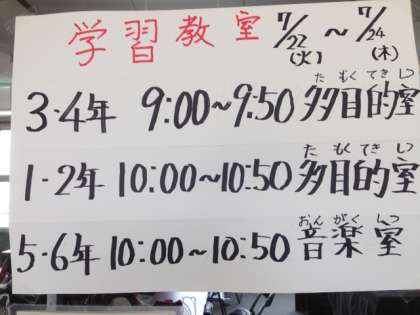 学習教室 7/22(火)～7/24(木)
たもくてきしつ
3・4年 9:00～9:50 多目的室
たもくてきしつ
1・2年 10:00～10:50 多目的室
おんがくしつ
5・6年 10:00～10:50 音楽室